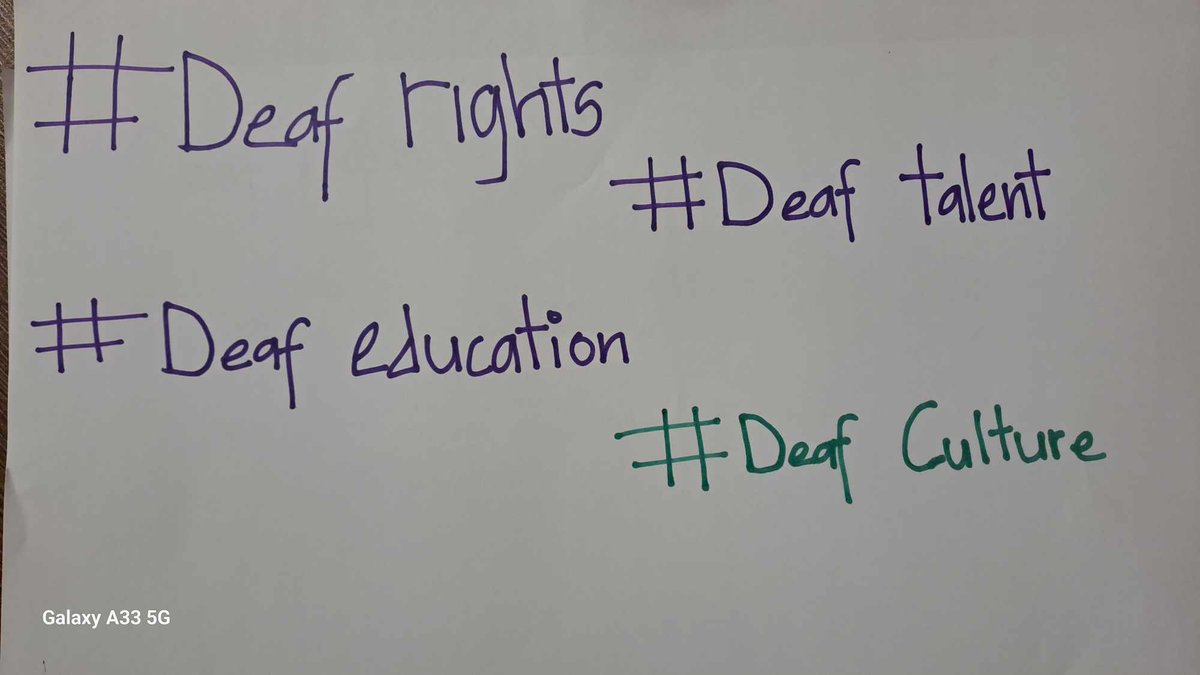 #Deaf rights
#Deaf talent
#Deaf education
#Deaf Culture
Galaxy A33 5G